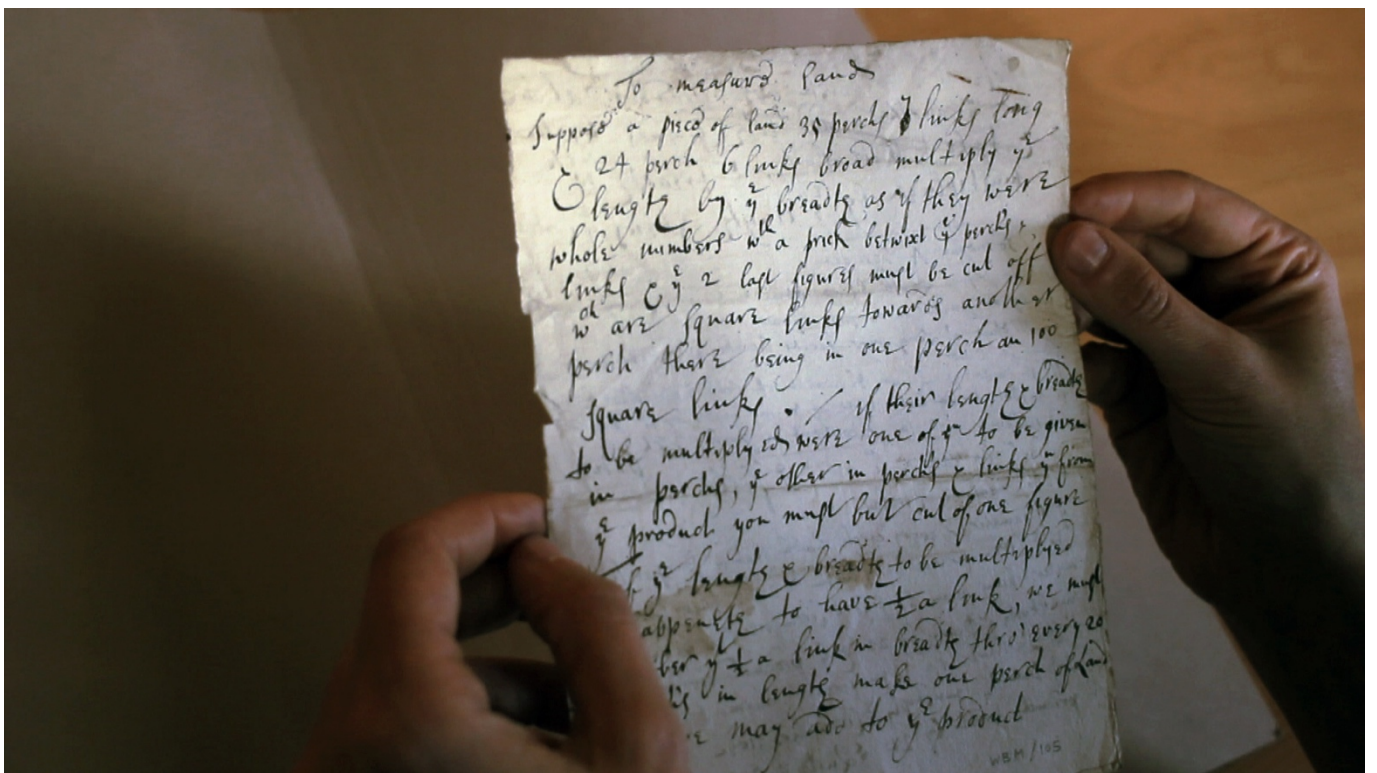 To measure land
Suppose a piece of land 35 perchs 7 links long
& 24 perch 6 links broad multiply ye
length by ye breadth as if they were
whole numbers wth a prick betwixt ye perchs,
links & ye 2 last figures must be cut off
wch are square links towards another
perch there being in one perch an 100
square links . / if their length & breadth
to be multiplyed were one of ym to be given
in perchs, ye other in perchs & links yn from
ye product you must but cut of one figure
ye length & breadth to be multiplyed
appeneth to have 1/2 a link, we must
ber yt 1/2 a link in breadth thro' every 20
in length make one perch of Land
may add to ye product
WBM/105